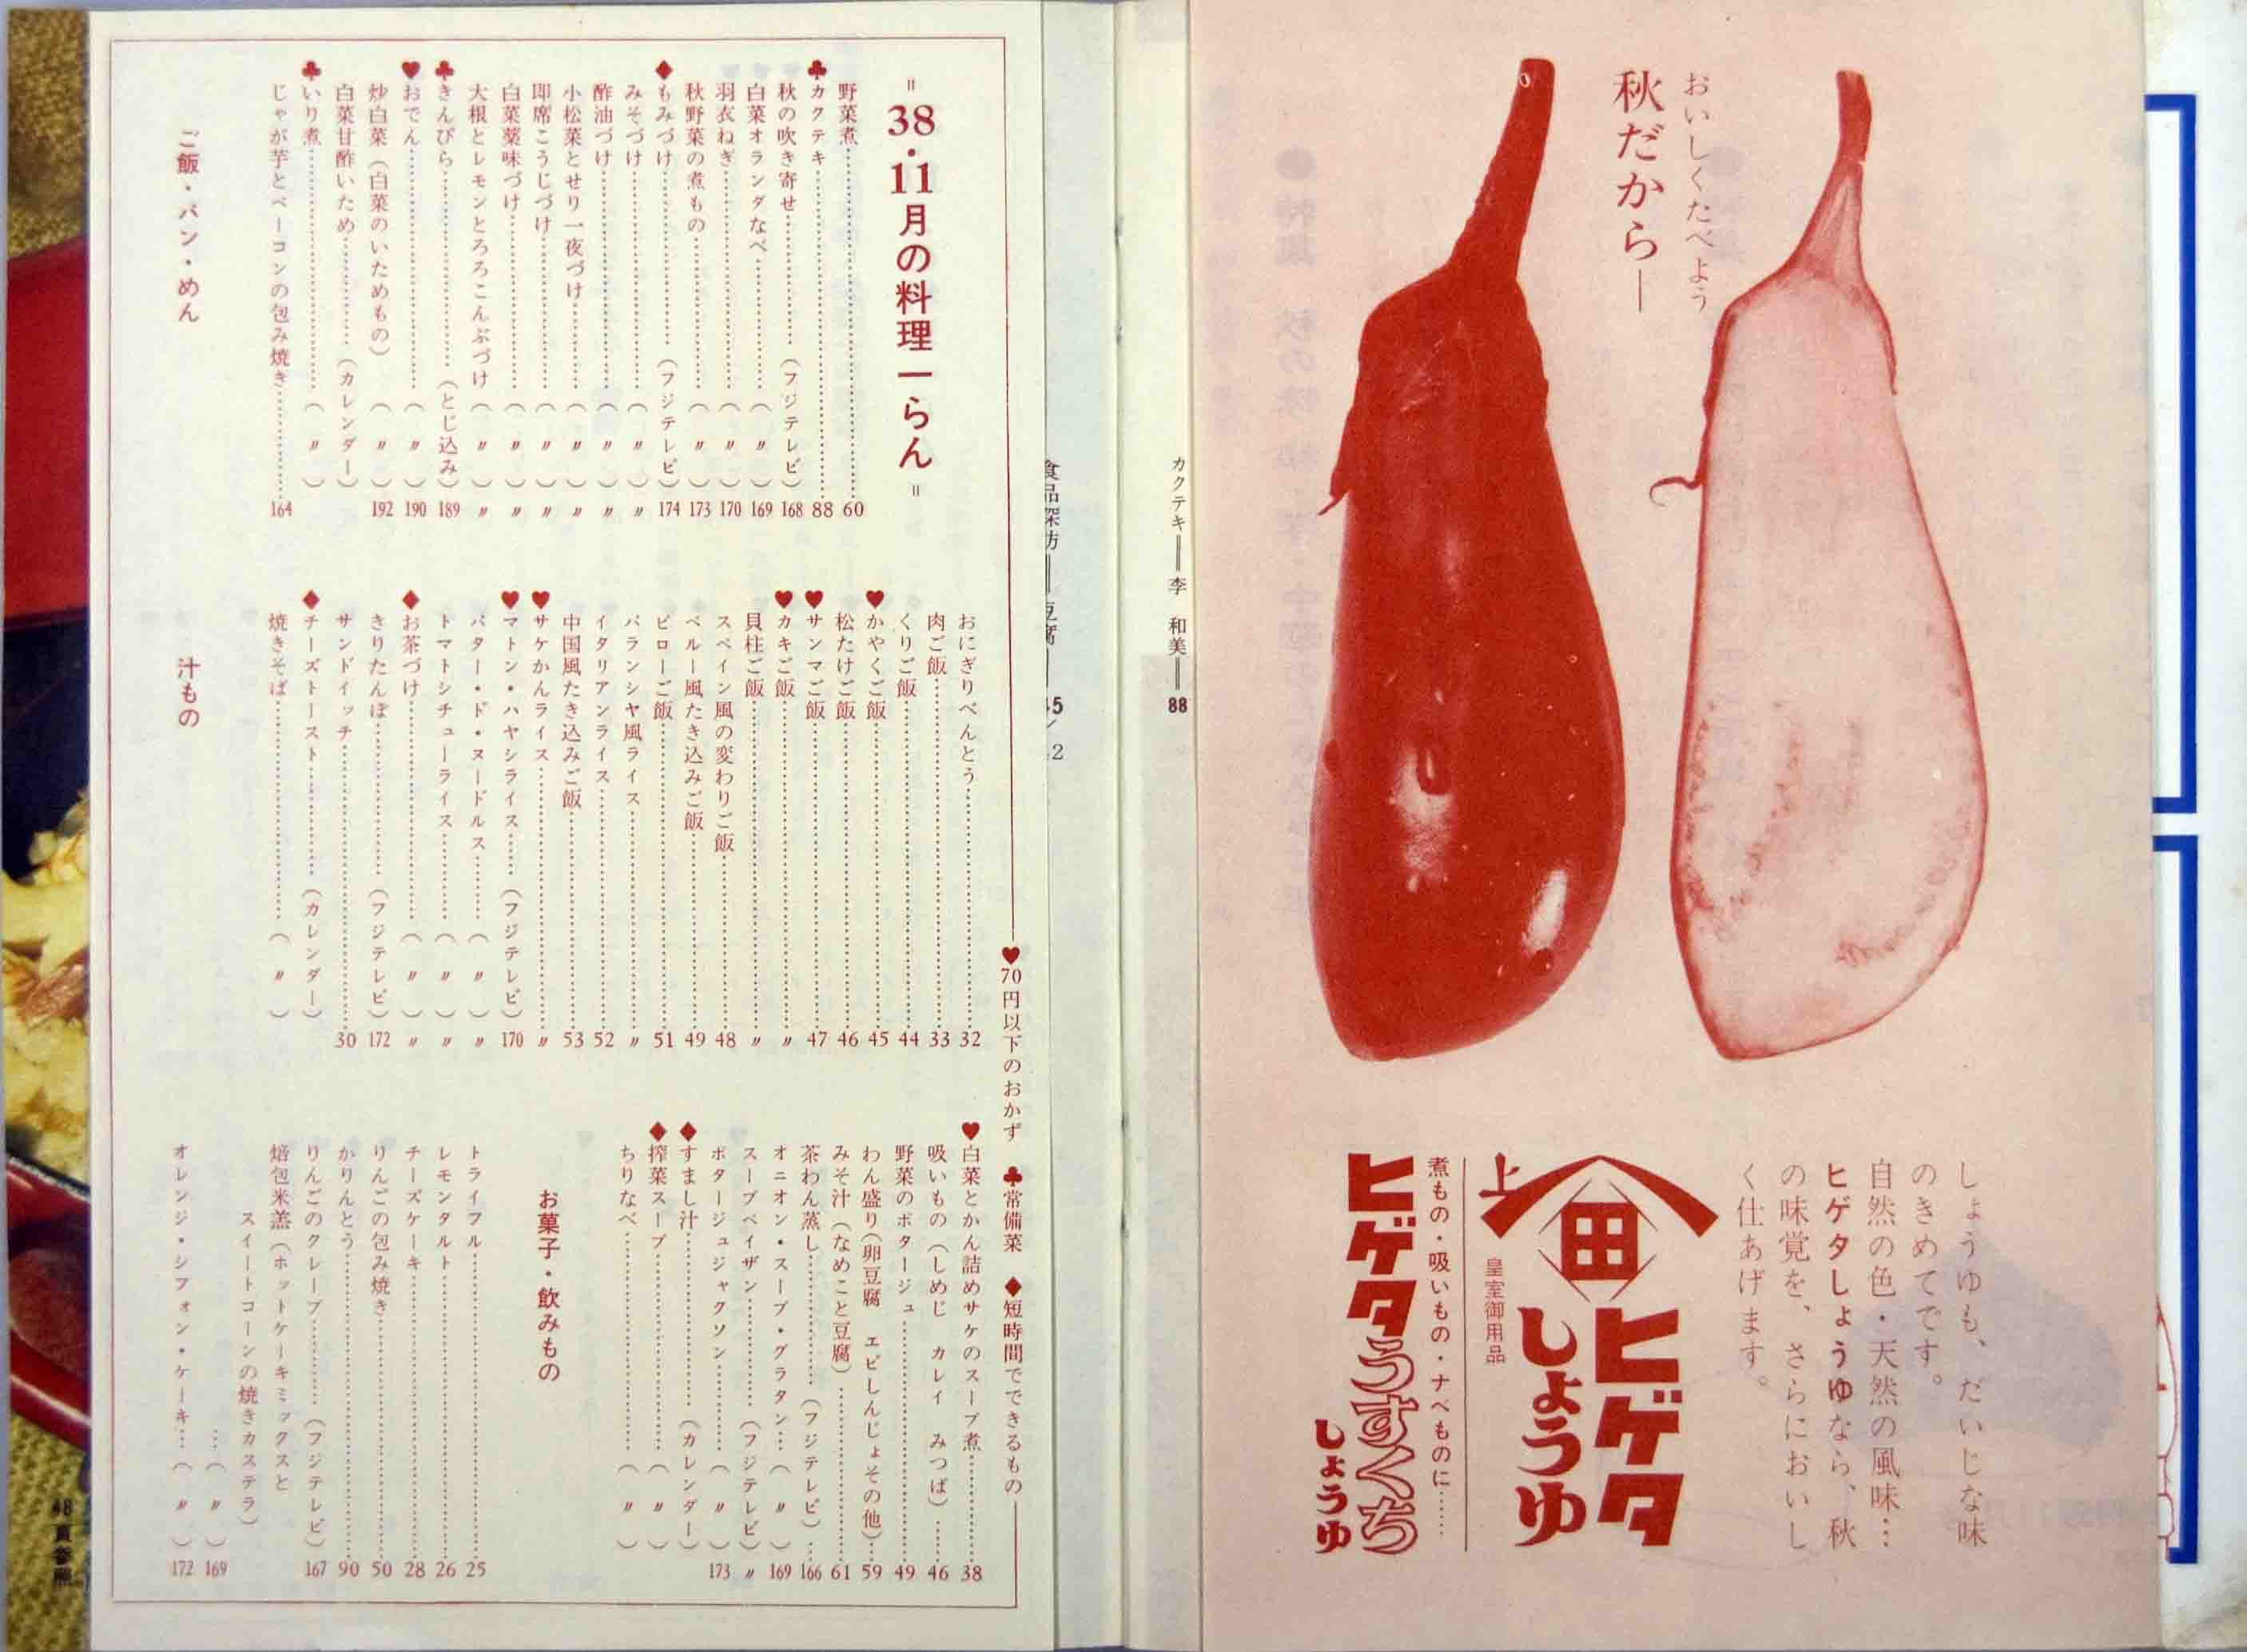 おいしくたべよう
秋だから―
しょうゆも、だいじな味
のきめてです。
自然の色・天然の風味…
ヒゲタしょうゆなら、秋
の味覚を、さらにおいし
く仕あげます。
上
田
ヒゲタ
しょうゆ
皇室御用品
煮もの・吸いもの・ナベものに……
ヒゲタうすくち
しょうゆ
カクテキ══李　和美══88
食品探訪══豆腐
45
2
♥70円以下のおかず　♣常備菜　◆短時間でできるもの
＝38・11月の料理一らん＝
野菜煮……60
♣カクテキ……88
秋の吹き寄せ……（フジテレビ）168
白菜オランダなべ……（〃）169
羽衣ねぎ……（〃）170
秋野菜の煮もの……（〃）173
◆もみづけ……（フジテレビ）174
みそづけ……（〃）〃
酢油づけ……（〃）〃
小松菜とせり一夜づけ……（〃）〃
即席こうじづけ……（〃）〃
白菜薬味づけ……（〃）〃
大根とレモンとろろこんぶづけ（〃）〃
♣きんぴら……（とじ込み）189
♥おでん……（〃）190
炒白菜（白菜のいためもの）（〃）192
白菜甘酢いため……（カレンダー）
♣いり煮……（〃）
じゃが芋とベーコンの包み焼き……164
ご飯・パン・めん
おにぎりべんとう……32
肉ご飯……33
くりご飯……44
♥かやくご飯……45
松たけご飯……46
♥サンマご飯……47
♥カキご飯……〃
貝柱ご飯……〃
スペイン風の変わりご飯……48
ペルー風たき込みご飯……49
ピローご飯……51
バランシヤ風ライス……〃
イタリアンライス……52
中国風たき込みご飯……53
♥サケかんライス……〃
♥マトン・ハヤシライス……（フジテレビ）170
バター・ド・ヌードルス……（〃）〃
トマトシチューライス……（〃）〃
◆お茶づけ……（〃）〃
きりたんぽ……（フジテレビ）172
サンドイッチ……30
◆チーズトースト……（カレンダー）
焼きそば……（〃）
汁もの
♥白菜とかん詰めサケのスープ煮……38
吸いもの（しめじ　カレイ　みつば）……46
野菜のポタージュ……49
わん盛り（卵豆腐　エビしんじょその他）…59
みそ汁（なめこと豆腐）……61
茶わん蒸し……（フジテレビ）…166
オニオン・スープ・グラタン…（〃）169
スープペイザン……（フジテレビ）〃
ポタージュジャクソン……（〃）173
◆すまし汁……（カレンダー）
◆搾菜スープ……（〃）
ちりなべ……（〃）
お菓子・飲みもの
トライフル……25
レモンタルト……26
チーズケーキ……28
りんごの包み焼き……50
かりんとう……90
りんごのクレープ……（フジテレビ）167
焙包米羔（ホットケーキミックスと
スイートコーンの焼きカステラ）
…（〃）169
オレンジ・シフォン・ケーキ…（〃）172
48頁参照